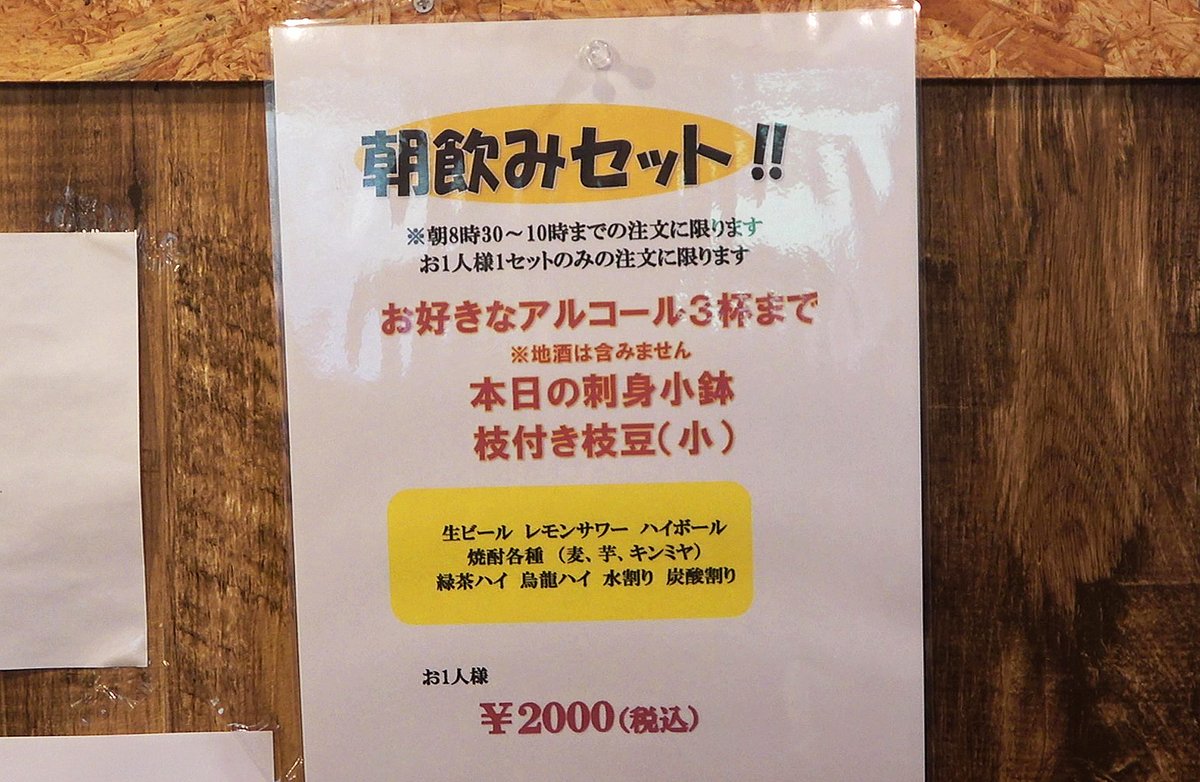 朝飲みセット!!
※朝8時30～10時までの注文に限ります
お1人様1セットのみの注文に限ります
お好きなアルコール3杯まで
※地酒は含みません
本日の刺身小鉢
枝付き枝豆(小)
生ビール レモンサワー ハイボール
焼酎各種 (麦、芋、キンミヤ)
緑茶ハイ 烏龍ハイ 水割り 炭酸割り
お1人様
￥2000(税込)